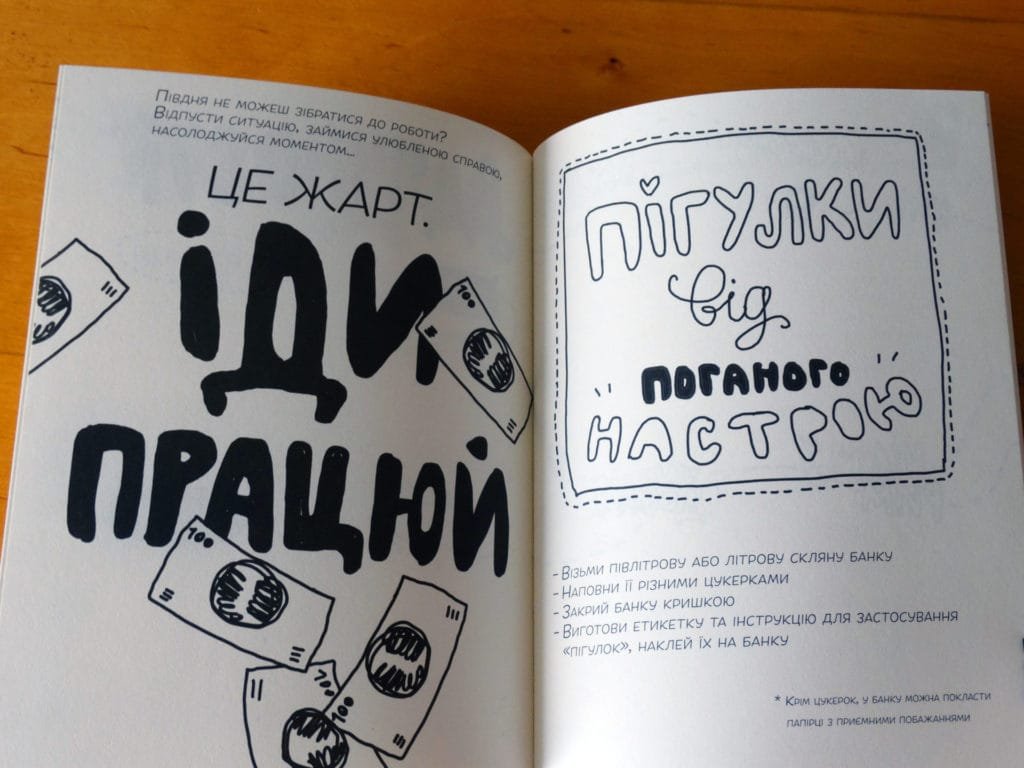 Півдня не можеш зібратися до роботи?
Відпусти ситуацію, займися улюбленою справою,
насолоджуйся моментом...
ЦЕ ЖАРТ.
ІДИ
100
ПРАЦЮЙ
100
100
100
ПІГУЛКИ
від
ПОГАНОГО
НАСТРІЮ
- Візьми півлітрову або літрову скляну банку
- Наповни її різними цукерками
- Закрий банку кришкою
- Виготови етикетку та інструкцію для застосування
«пігулок», наклей їх на банку
* Крім цукерок, у банку можна покласти
папірці з приємними побажаннями